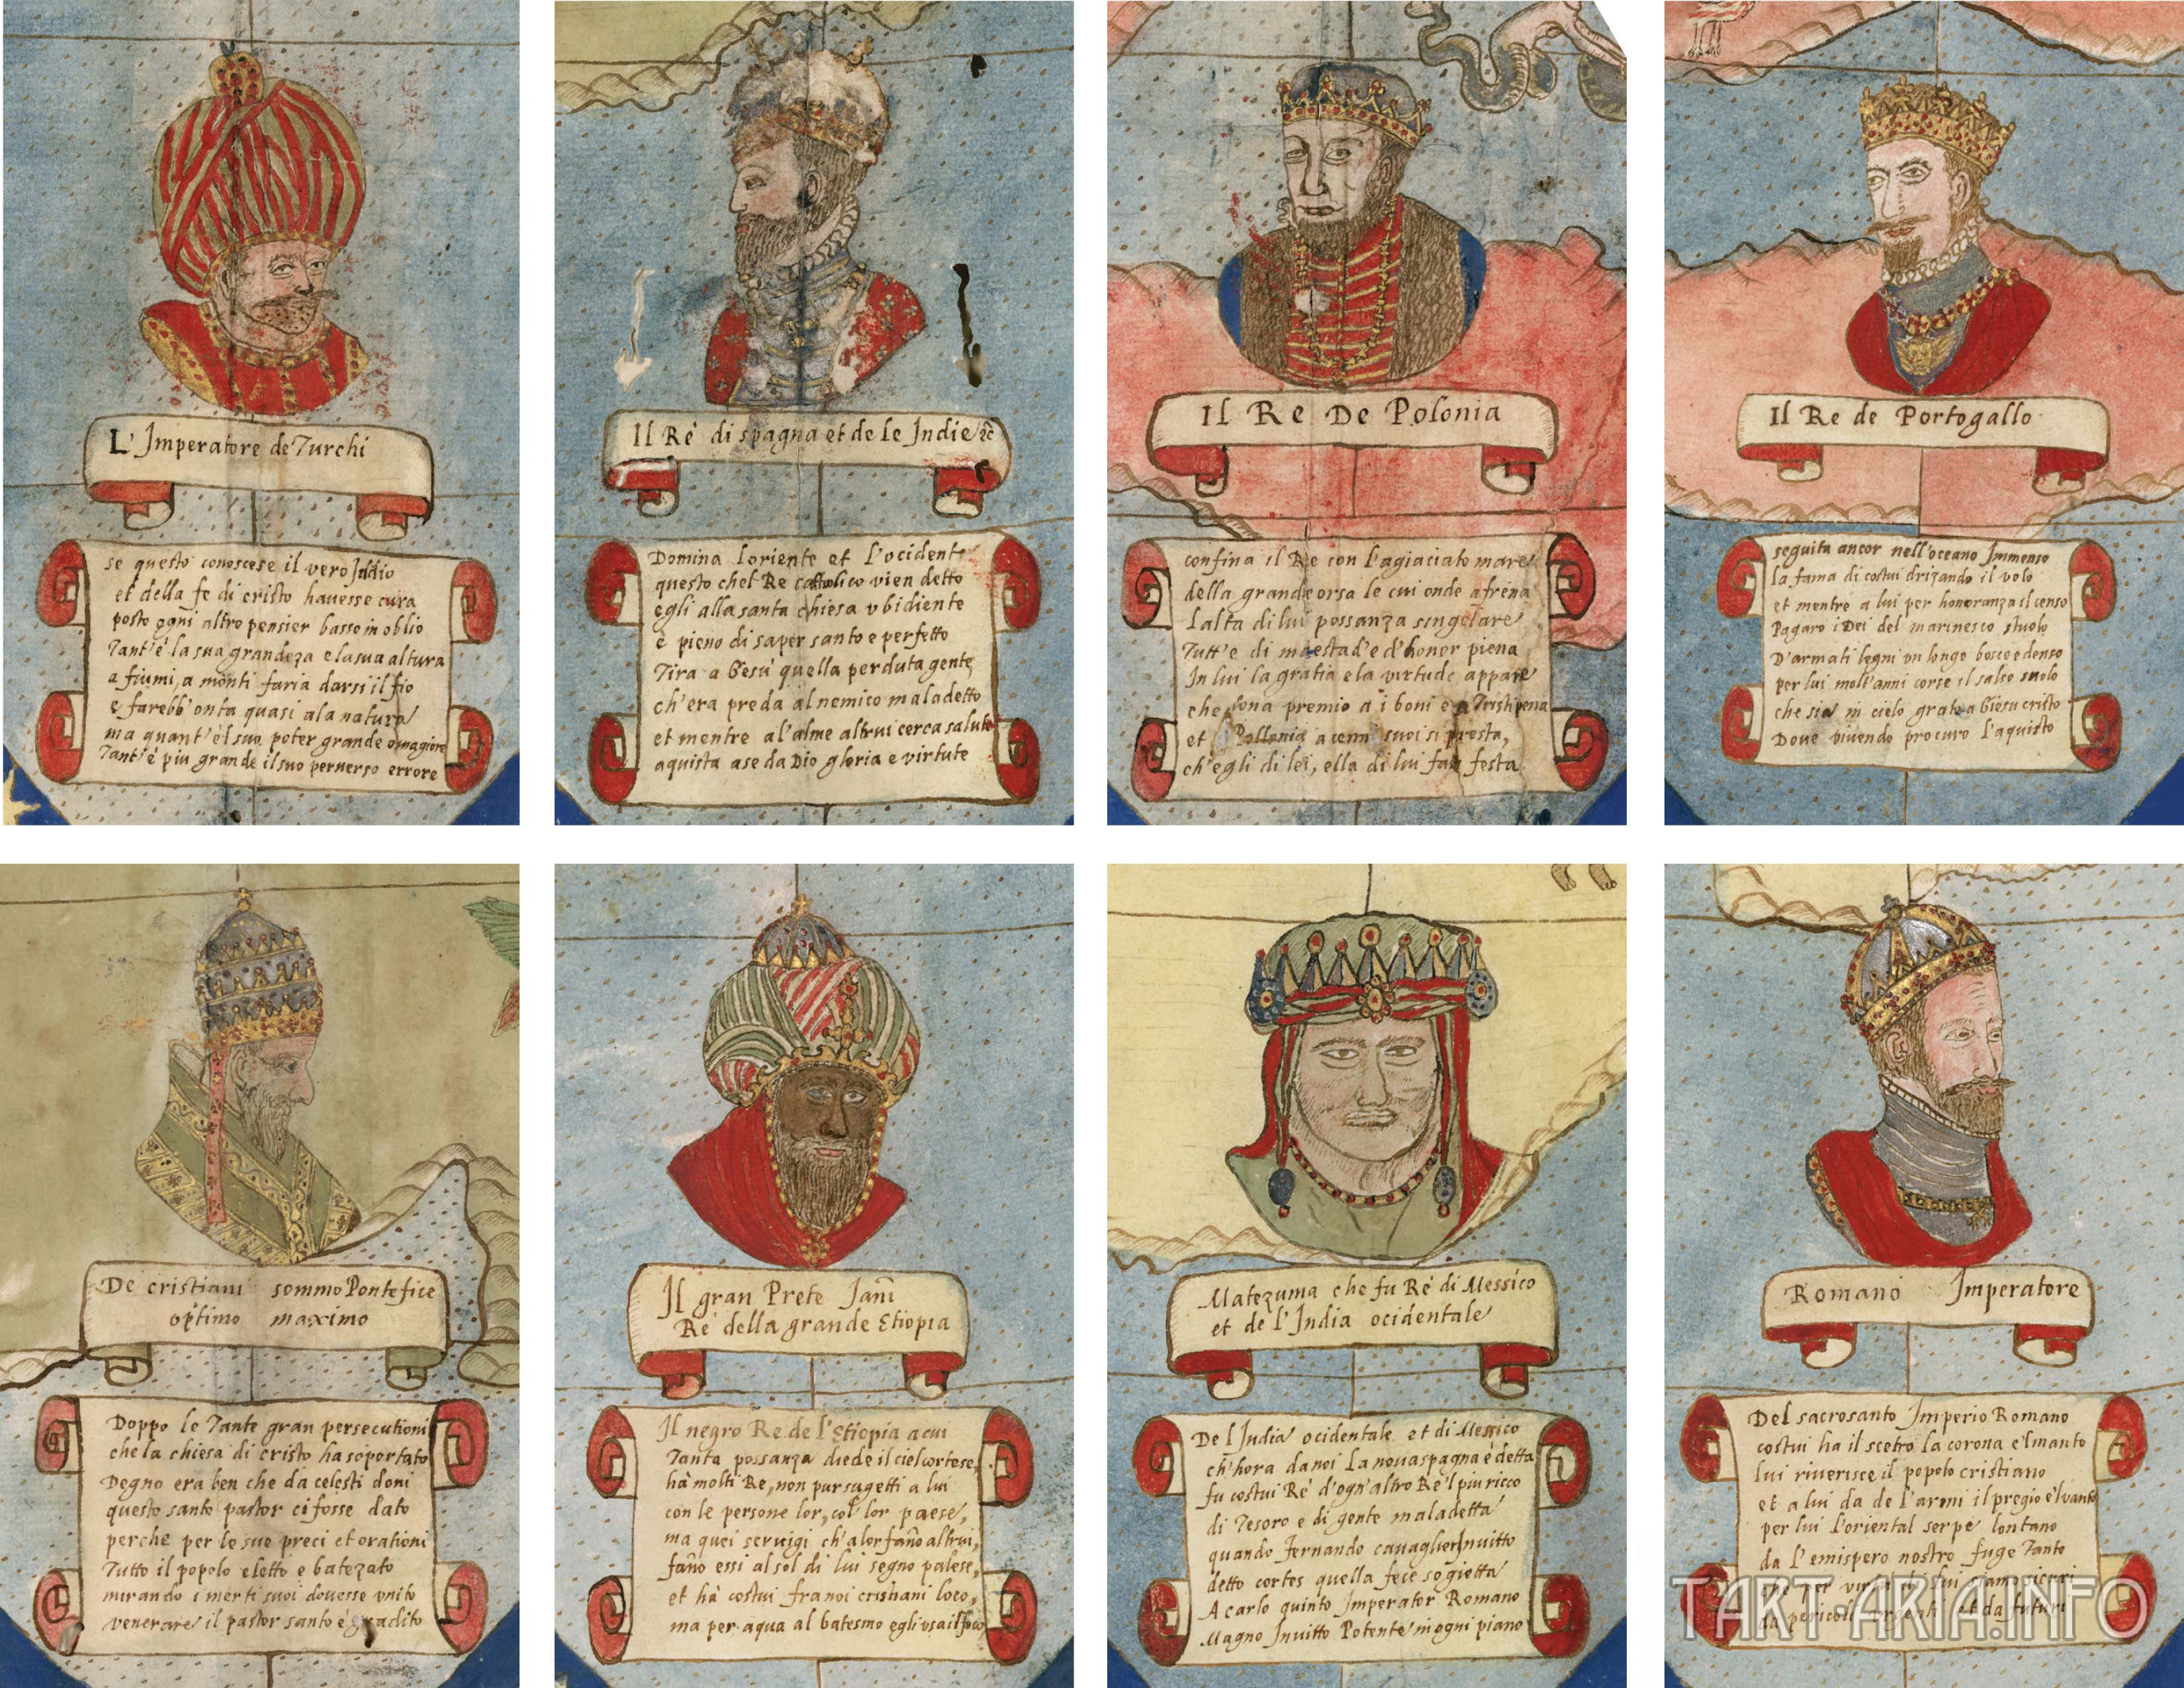 L' Imperatore de Turchi
se questo conoscese il vero Iddio
et della fe di cristo hauesse cura
posto ogni altro pensier basso in oblio
Tant'è la sua grandeza e la sua altura
a fiumi, a monti faria darsi il fio
e farebb'onta quasi ala natura
ma quant'è l suo poter grande o magiore
Tant'è piu grande il suo peruerso errore
Il Rè di spagna et de le Indie &c
Domina l'oriente et l'ocidente
questo chel Re cattolico vien detto
egli alla santa chiesa vbidiente
è pieno di saper santo e perfetto
Tira a Gesù quella perduta gente
ch'era preda al nemico maladetto
et mentre al'alme altrui cerca salute
aquista a se da Dio gloria e virtute
Il Re De Polonia
confina il Re con l'agiaciato mare
della grande orsa le cui onde afrena
l'alta di lui possanza singolare
Tutt'e di maestad'e d'honor piena
In lui la gratia e la virtude appare
che dona premio a i boni e a Tristi pena
et Pollonia a cenni suoi si presta,
ch'egli di lei, ella di lui fan festa
Il Re de Portogallo
seguita ancor nell'oceano Immenso
la fama di costui drizando il volo
et mentre a lui per honoranza il censo
Pagaro i Dei del marinesco stuolo
D'armati legni vn longo bosco e denso
per lui molt'anni corse il salso suolo
che sia in cielo grato a Giesu cristo
Doue viuendo procuro l'aquisto
De cristiani sommo Pontefice
optimo maximo
Doppo le Tante gran persecutioni
che la chiesa di cristo ha soportato
Degno era ben che da celesti doni
questo santo pastor ci fosse dato
perche per le sue preci et orationi
Tutto il popolo eletto e batezato
mirando i merti suoi douesse vnito
venerare il pastor santo e gradito
Il gran Prete Janni
Re della grande Etiopia
Il negro Re de l'Etiopia a cui
Tanta possanza diede il ciel cortese,
hà molti Re, non pur sugetti a lui
con le persone lor, col' lor paese,
ma quei seruigi ch'a lor fano altrui,
fano essi al sol di lui segno palese,
et hà costui fra noi cristiani loco,
ma per aqua al batesmo egli vsa il foco
Matezuma che fu Rè di Messico
et de l'India ocidentale
De l India ocidentale et di Messico
ch'hora da noi la noua spagna è detta
fu costui Rè d'ogn'altro Rè'l piu ricco
di Tesoro e di gente maladetta
quando Fernando cauaglier Inuitto
detto cortes quella fece sogietta
A carlo quinto Imperator Romano
Magno Inuitto Potente in ogni piano
Romano Imperatore
Del sacrosanto Imperio Romano
costui ha il scetro la corona e'l manto
lui riuerisce il popolo cristiano
et a lui da de l'armi il pregio e'l vanto
per lui l'oriental serpe lontano
da l'emispero nostro fuge Tanto
che per virtu di lui siamo sicuri
da pericoli presenti et da futuri
TART-ARIA.INFO